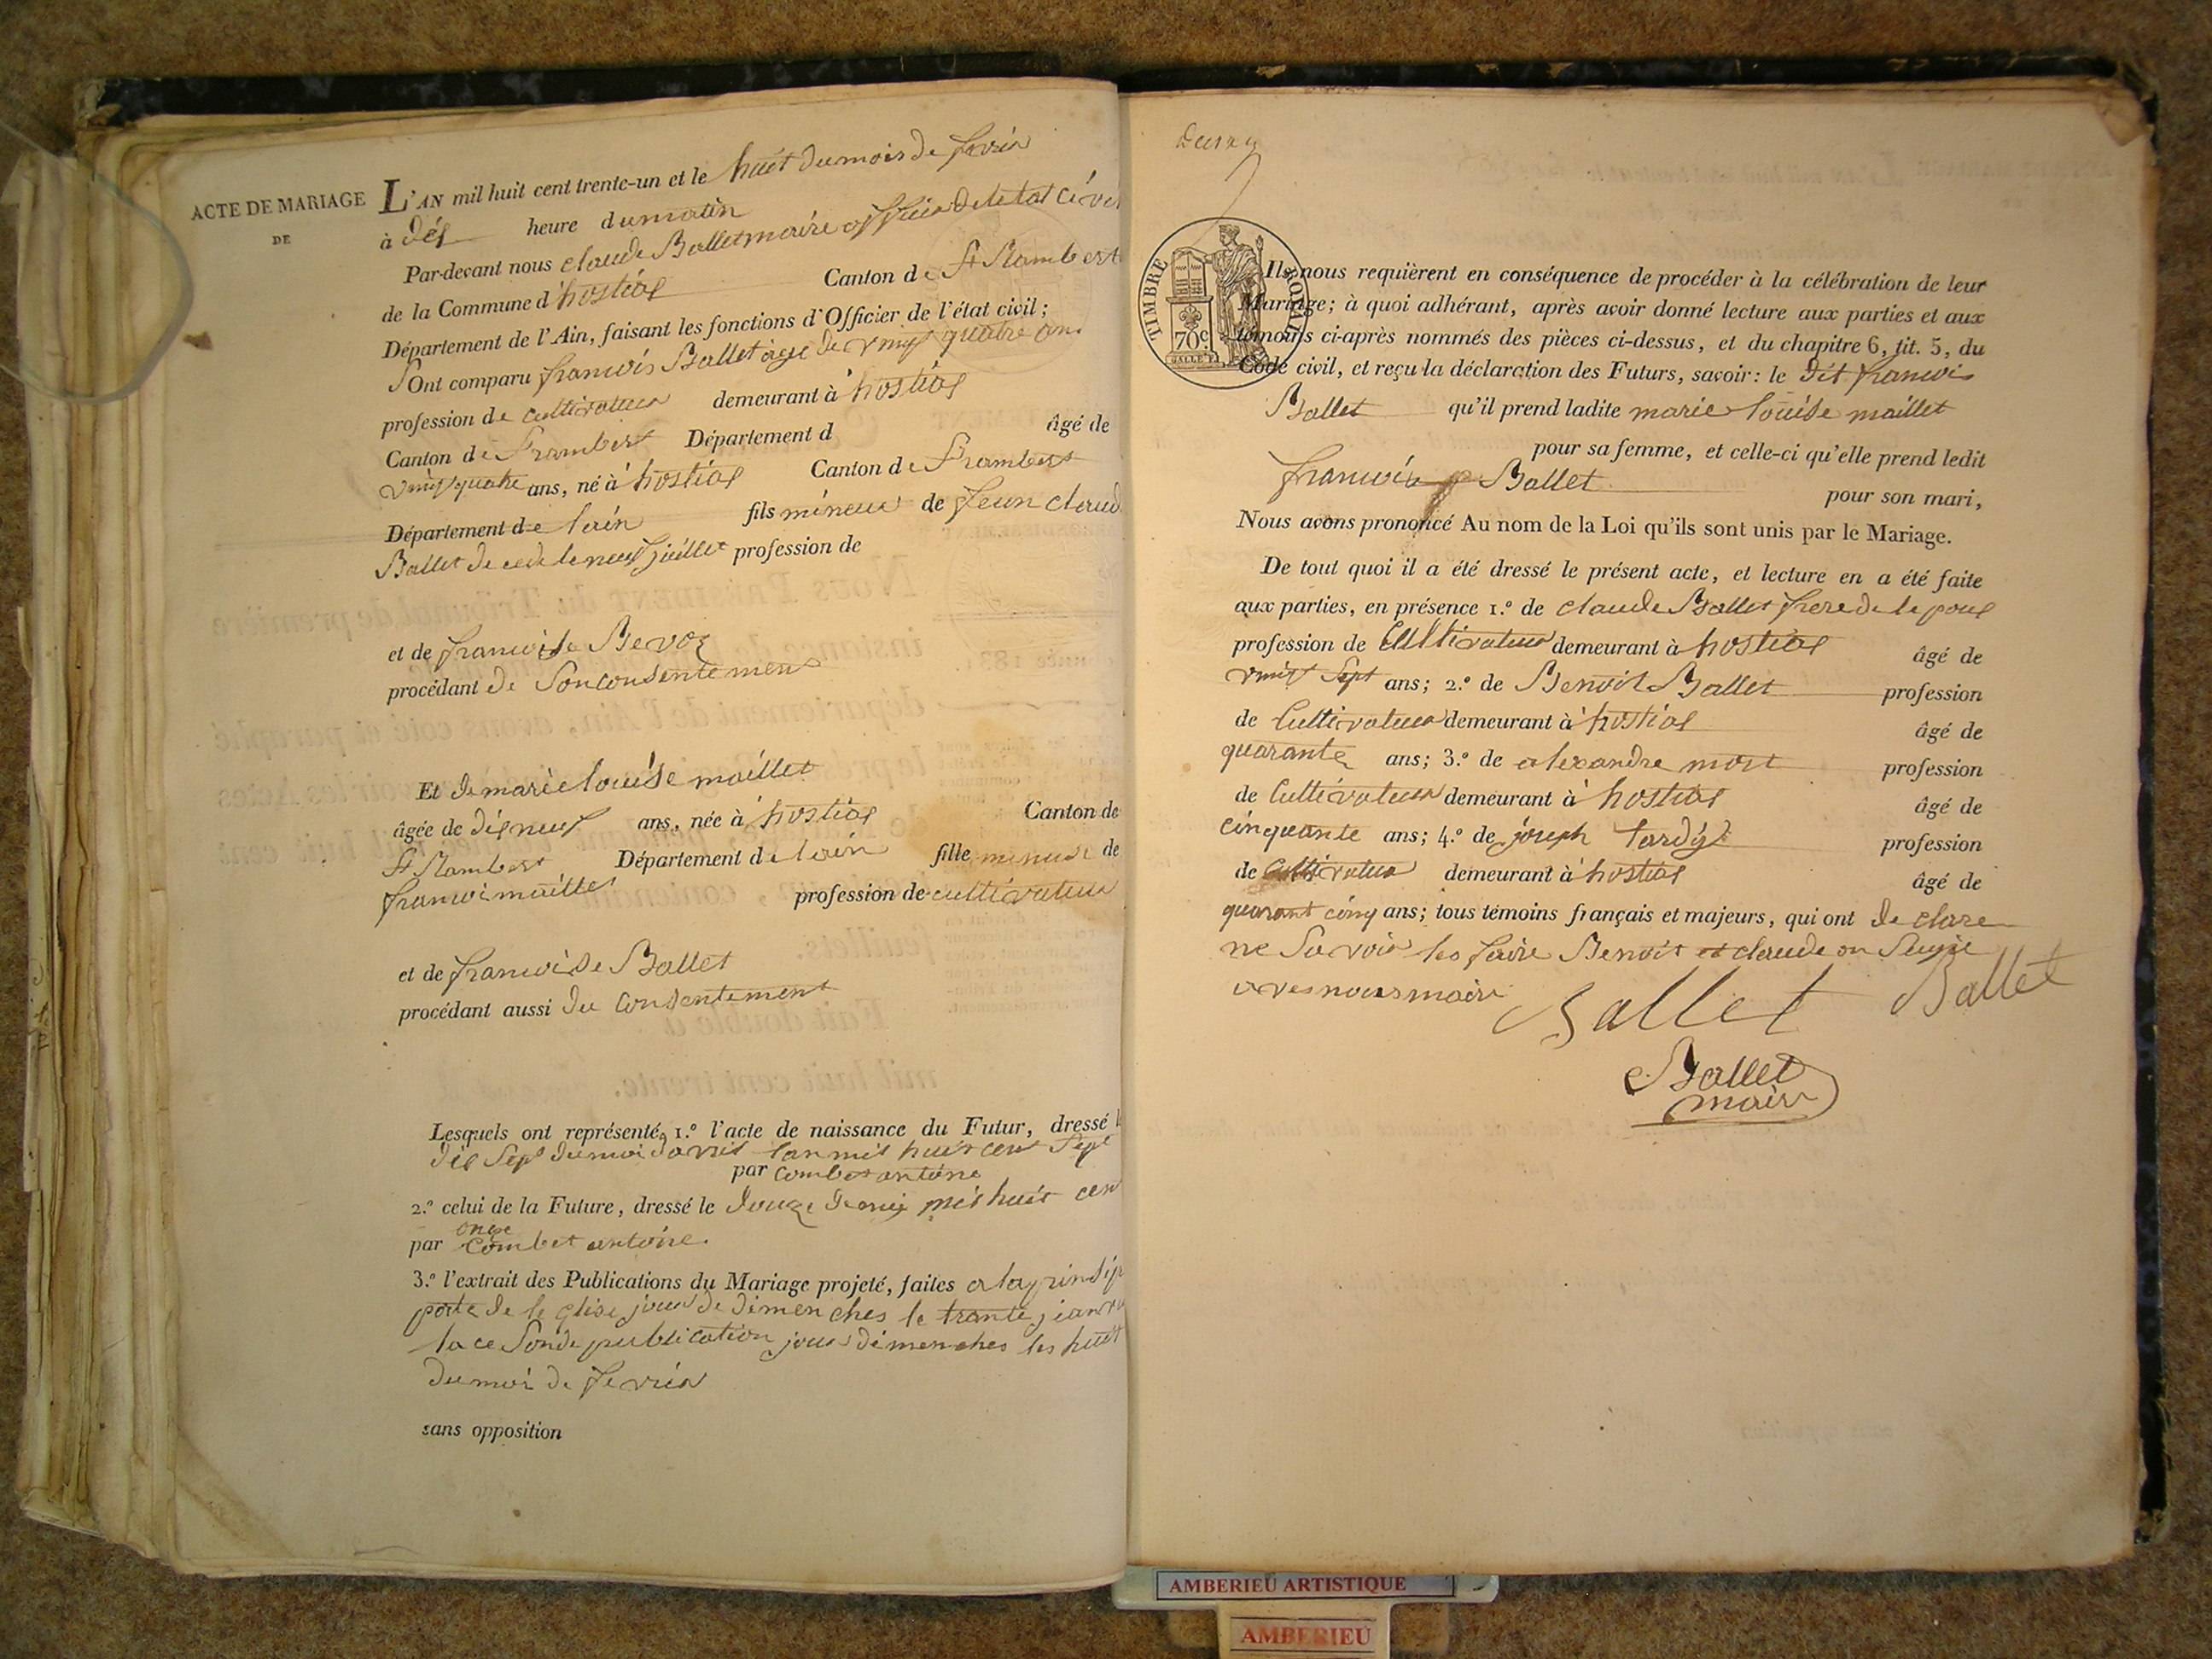 ACTE DE MARIAGE
DE
L'AN mil huit cent trente-un et le huit du mois de fevrié
à dis heure du matin
Par-devant nous claude Ballet maire officier de letat civil
de la Commune d'hostias Canton de St Rambert
Département de l'Ain, faisant les fonctions d'Officier de l'état civil;
Ont comparu francois Ballet agé de vingt quatre ans
profession de cultivateur demeurant à hostias
Canton de St rambert Département d âgé de
vingt quatre ans, né à hostias Canton de St rambert
Département de lain fils mineur de Jean claud
Ballet decedé le neuf juillet profession de
et de francoise Bevoz
procédant de Son consentement
Et de marie louise maillet
âgée de disneuf ans, née à hostias Canton de
St Rambert Département de lain fille mineure de
francoi maillet profession de cultivateur
et de francoise Ballet
procédant aussi du consentement
Lesquels ont représenté, 1.º l'acte de naissance du Futur, dressé le
dis Sept du moi davril lan mil huit cent Sept
par combet antoine
2.º celui de la Future, dressé le douze de mil huit cen
onze
par Combet antoine.
3.º l'extrait des Publications du Mariage projeté, faites a la prinsip
porte de leglise jour de dimenches le trante janvie
la ce Sonde publication jour dimenches les huit
du moi de fevrié
sans opposition
TIMBRE ROYAL
70c
Ils nous requièrent en conséquence de procéder à la célébration de leur
Mariage; à quoi adhérant, après avoir donné lecture aux parties et aux
témoins ci-après nommés des pièces ci-dessus, et du chapitre 6, tit. 5, du
Code civil, et reçu la déclaration des Futurs, savoir: le dit francois
Ballet qu'il prend ladite marie louise maillet
pour sa femme, et celle-ci qu'elle prend ledit
francois Ballet pour son mari,
Nous avons prononcé Au nom de la Loi qu'ils sont unis par le Mariage.
De tout quoi il a été dressé le présent acte, et lecture en a été faite
aux parties, en présence 1.º de claude Ballet frere de lepous
profession de Cultivateur demeurant à hostias âgé de
vingt Sept ans; 2.º de Benoit Ballet profession
de Cultivateur demeurant à hostias âgé de
quarante ans; 3.º de alexandre mort profession
de Cultivateur demeurant à hostias âgé de
cinquante ans; 4.º de joseph tardy profession
de Cultivateur demeurant à hostias âgé de
quarant cinq ans; tous témoins français et majeurs, qui ont declare
ne Savoir les faire Benoit et claude on Signé
avec nous maire
Ballet Ballet
Ballet
maire
AMBERIEU ARTISTIQUE
AMBERIEU